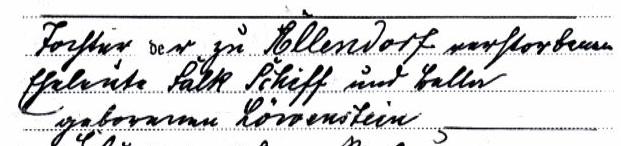 Tochter der zu Ellendorf verstorbenen
Eheleute Falk Schiff und Bella
geborenen Löwenstein